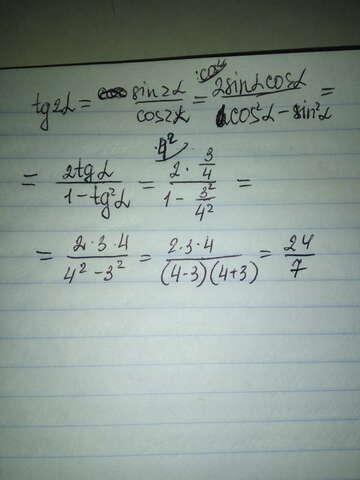 tg2α = sin2α/cos2α = :cos²α 2sinαcosα/cos²α − sin²α =
= 2tgα/1−tg²α = ·4² 2·3/4/1−3²/4² =
= 2·3·4/4²−3² = 2·3·4/(4−3)(4+3) = 24/7